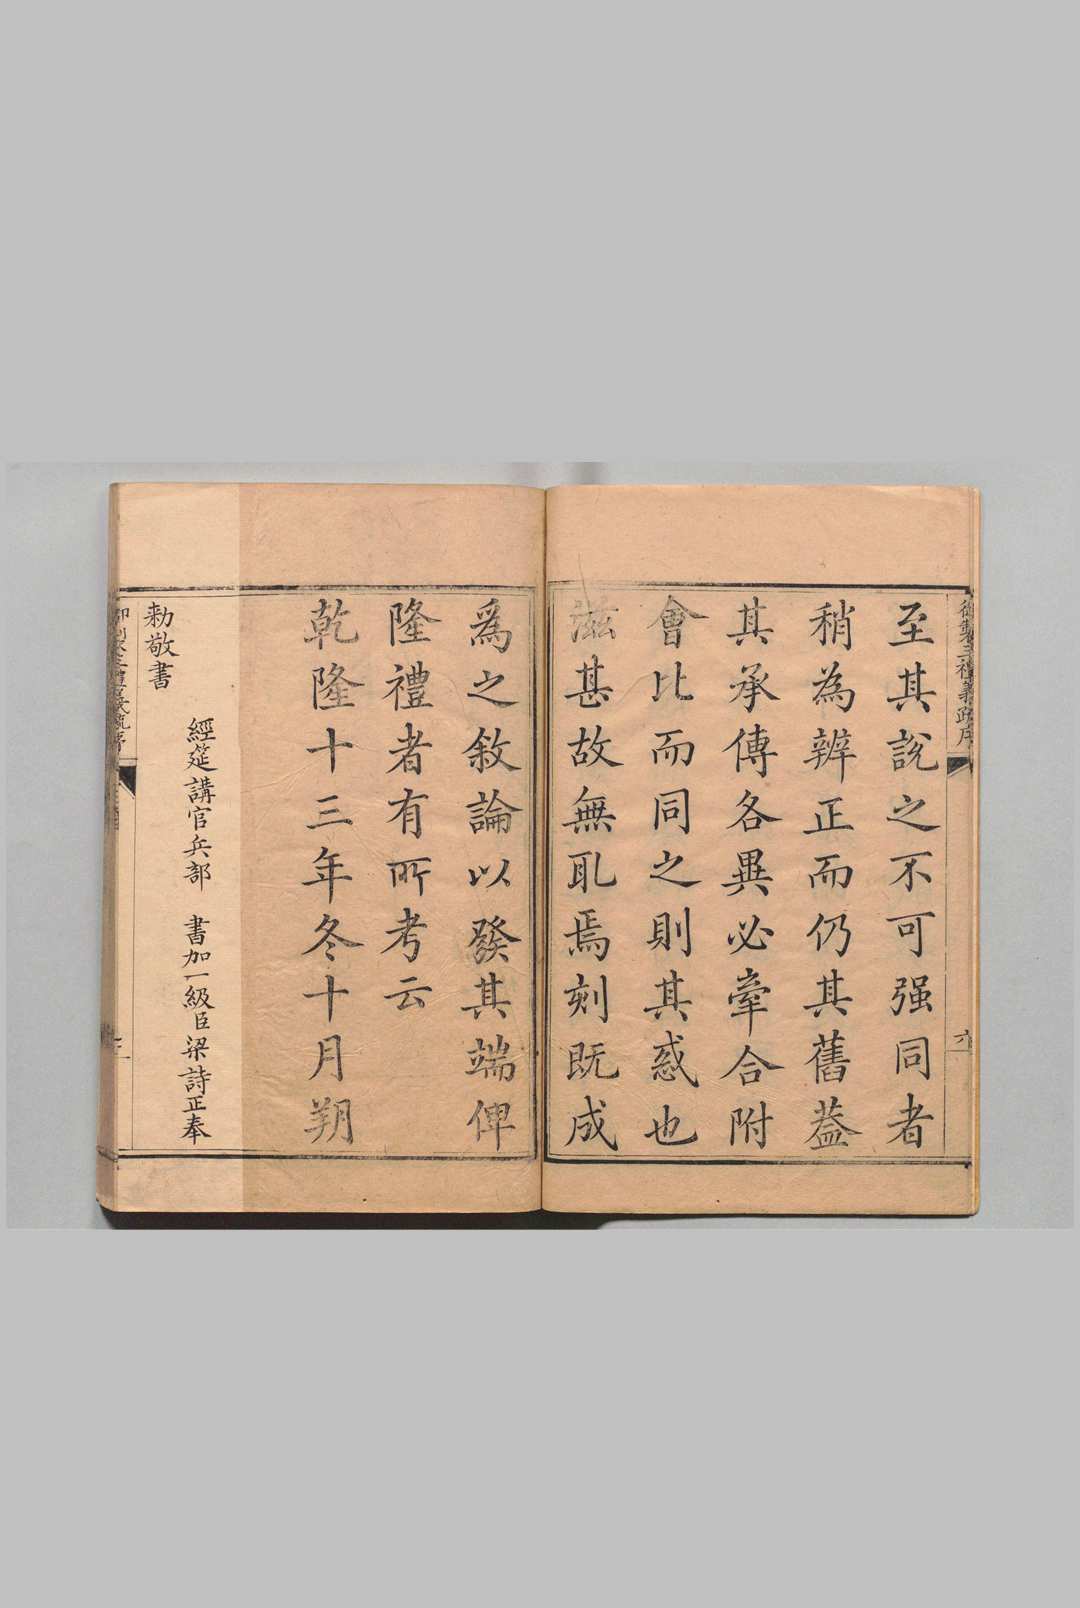 御製三禮義疏序
至其說之不可强同者
稍為辨正而仍其舊葢
其承傳各異必牽合附
會比而同之則其惑也
滋甚故無取焉刻既成
六
爲之敘論以發其端俾
隆禮者有所考云
乾隆十三年冬十月朔
經筵講官兵部 書加一級臣梁詩正奉
勅敬書
御製三禮義疏序